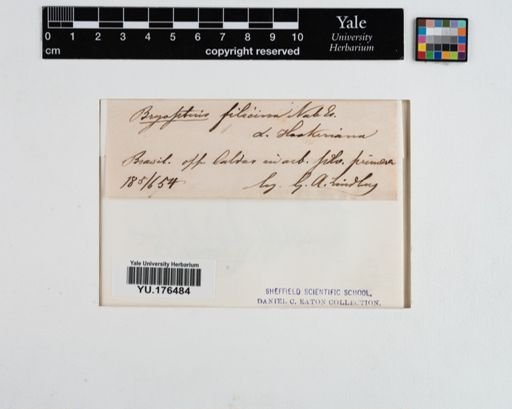 0 1 2 3 4 5 6 7 8 9 10
cm
copyright reserved
Yale
University
Herbarium
Bryopteris filicina Nab Es.
d. Hookeriana
Brasil. opp. Caldas in arb. silv. primaev
18 5/6 54 leg. G. A. Lindberg
Yale University Herbarium
YU.176484
SHEFFIELD SCIENTIFIC SCHOOL,
DANIEL C. EATON COLLECTION.